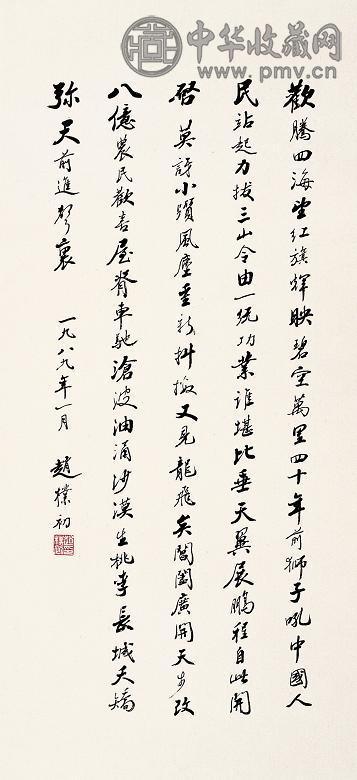 中华收藏网
www.pmv.cn
歡騰四海望红旗輝映碧空萬里四十年前獅子吼中國人
民站起力拔三山令由一統功業誰堪比垂天翼展鵬程自此開
啓莫訝小躓風塵重新抖擻又見龍飛矣閶闔廣開天步改
八億農民歡喜屋脊車馳滄波油涌沙漠生桃李長城夭矯
弥天前進聲裏 一九八九年一月 趙樸初